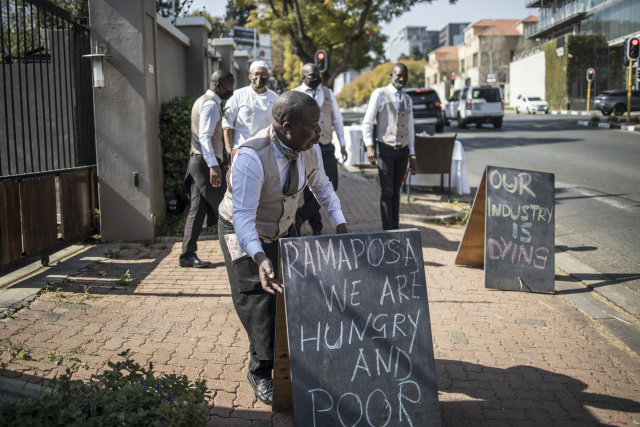 RAMAPOSA
WE ARE
HUNGRY
AND
POOR
OUR
INDUSTRY
IS
DYING